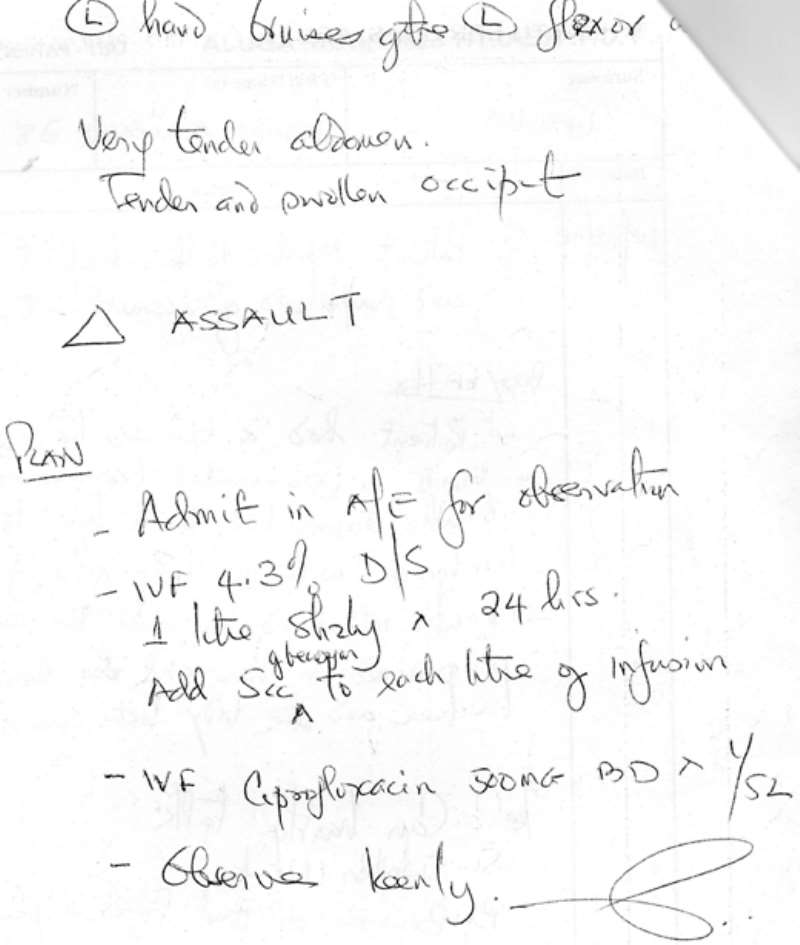 Ⓛ hand bruises of the Ⓛ flexor
Very tender abdomen.
Tender and swollen occiput
△ ASSAULT
PLAN
- Admit in A/E for observation
- IVF 4.3% D/S
1 litre 8hrly x 24 hrs.
Add 5cc to each litre of infusion
- IVF Ciprofloxacin 500MG BD x 1/52
- Observe keenly.